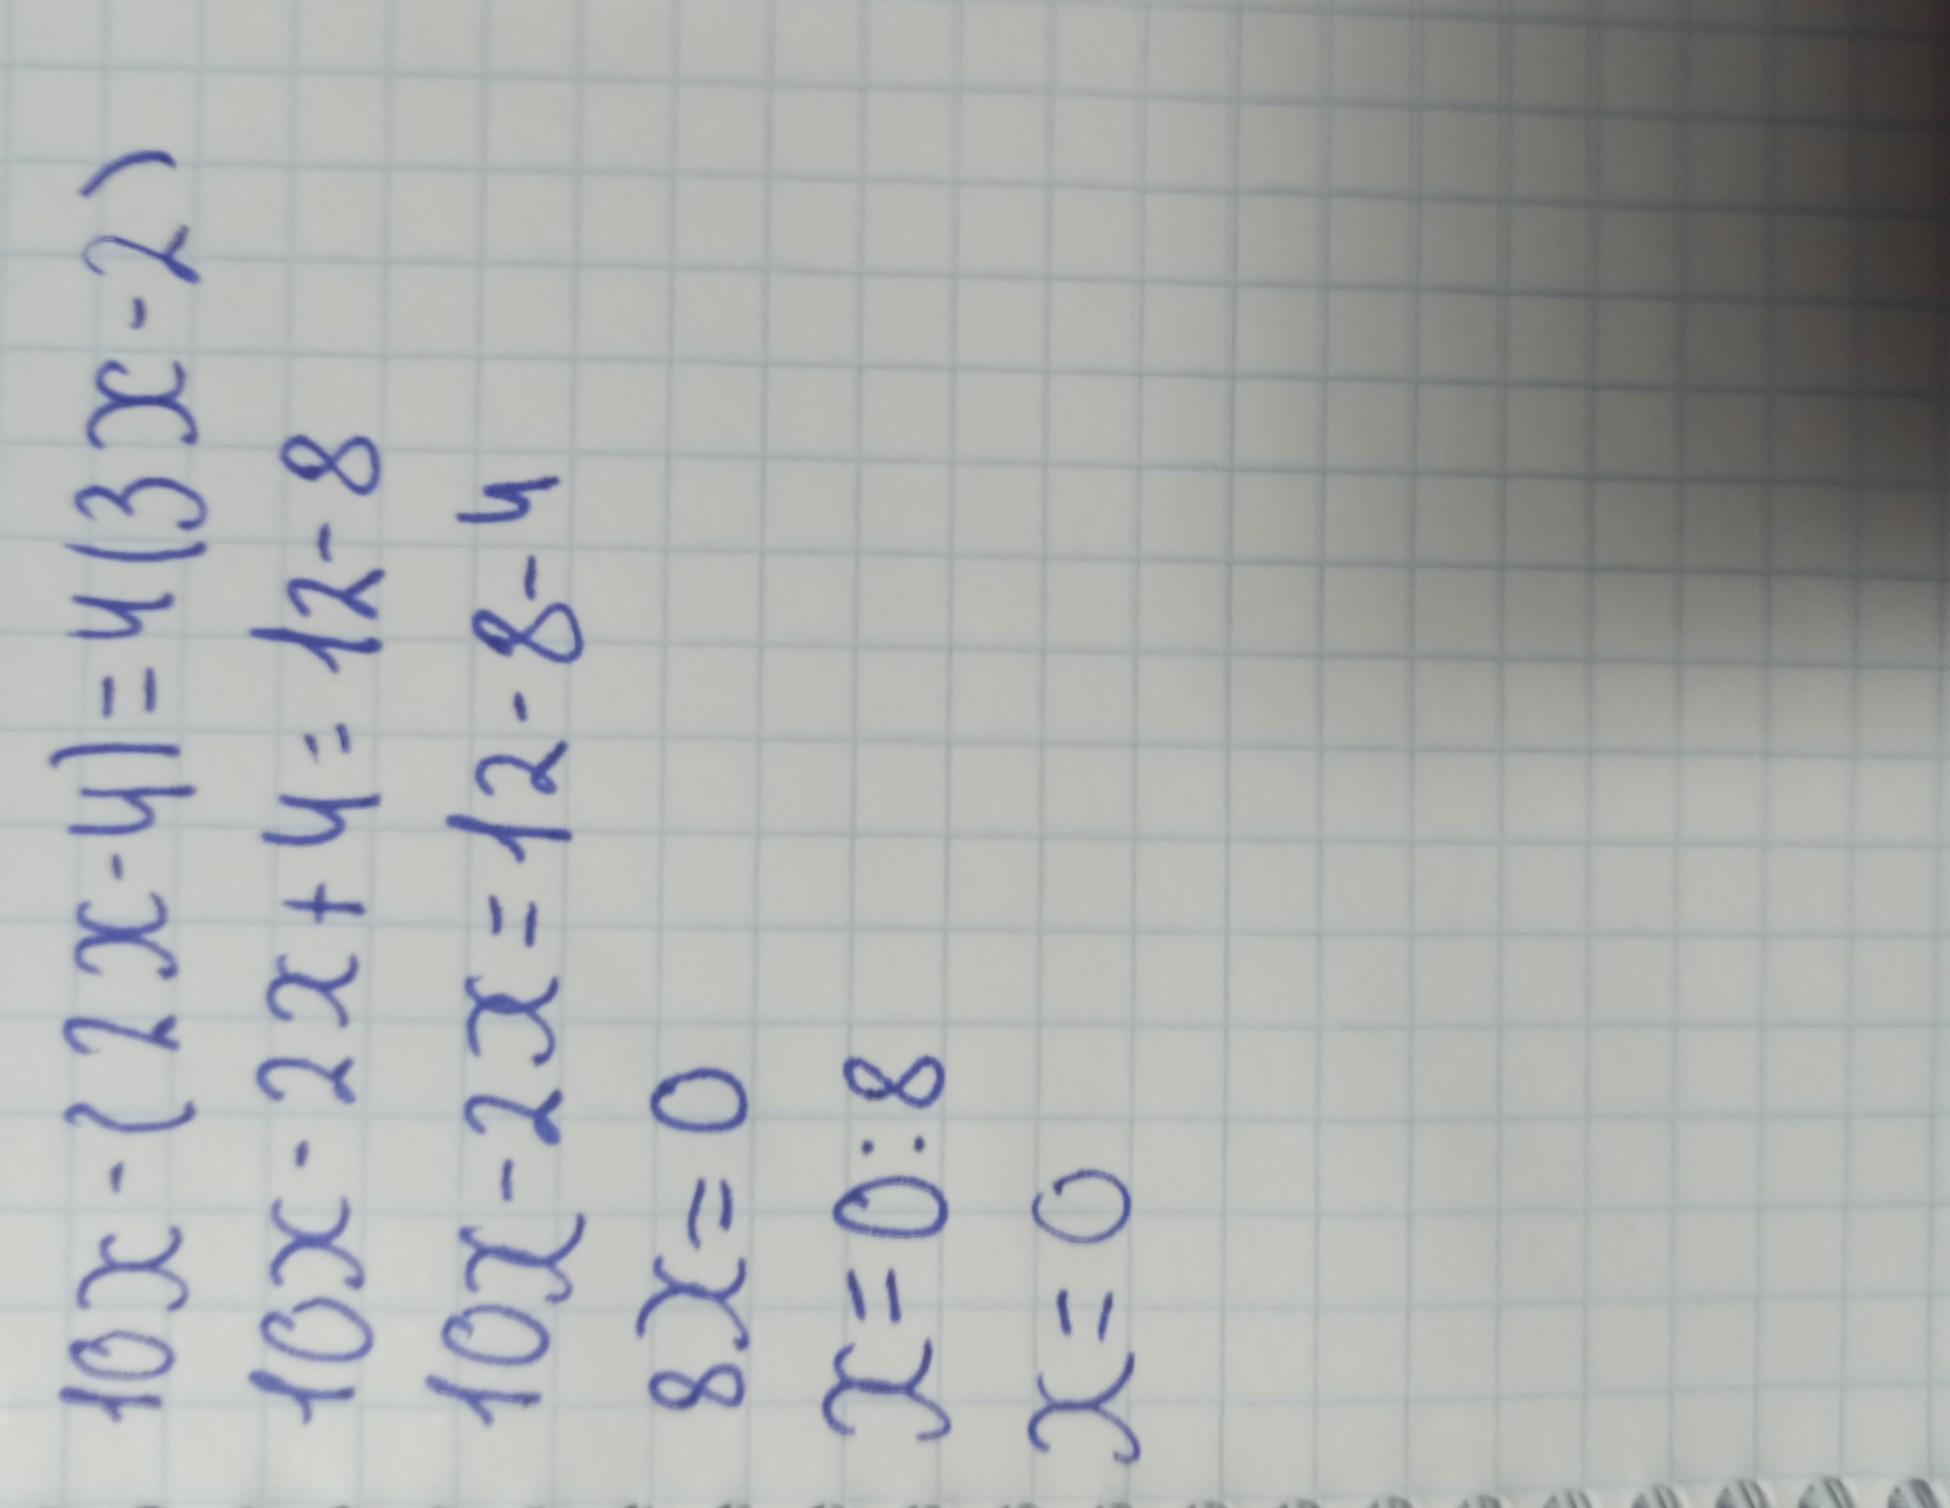 10x-(2x-4)=4(3x-2)
10x-2x+4=12-8
10x-2x=12-8-4
8x=0
x=0:8
x=0